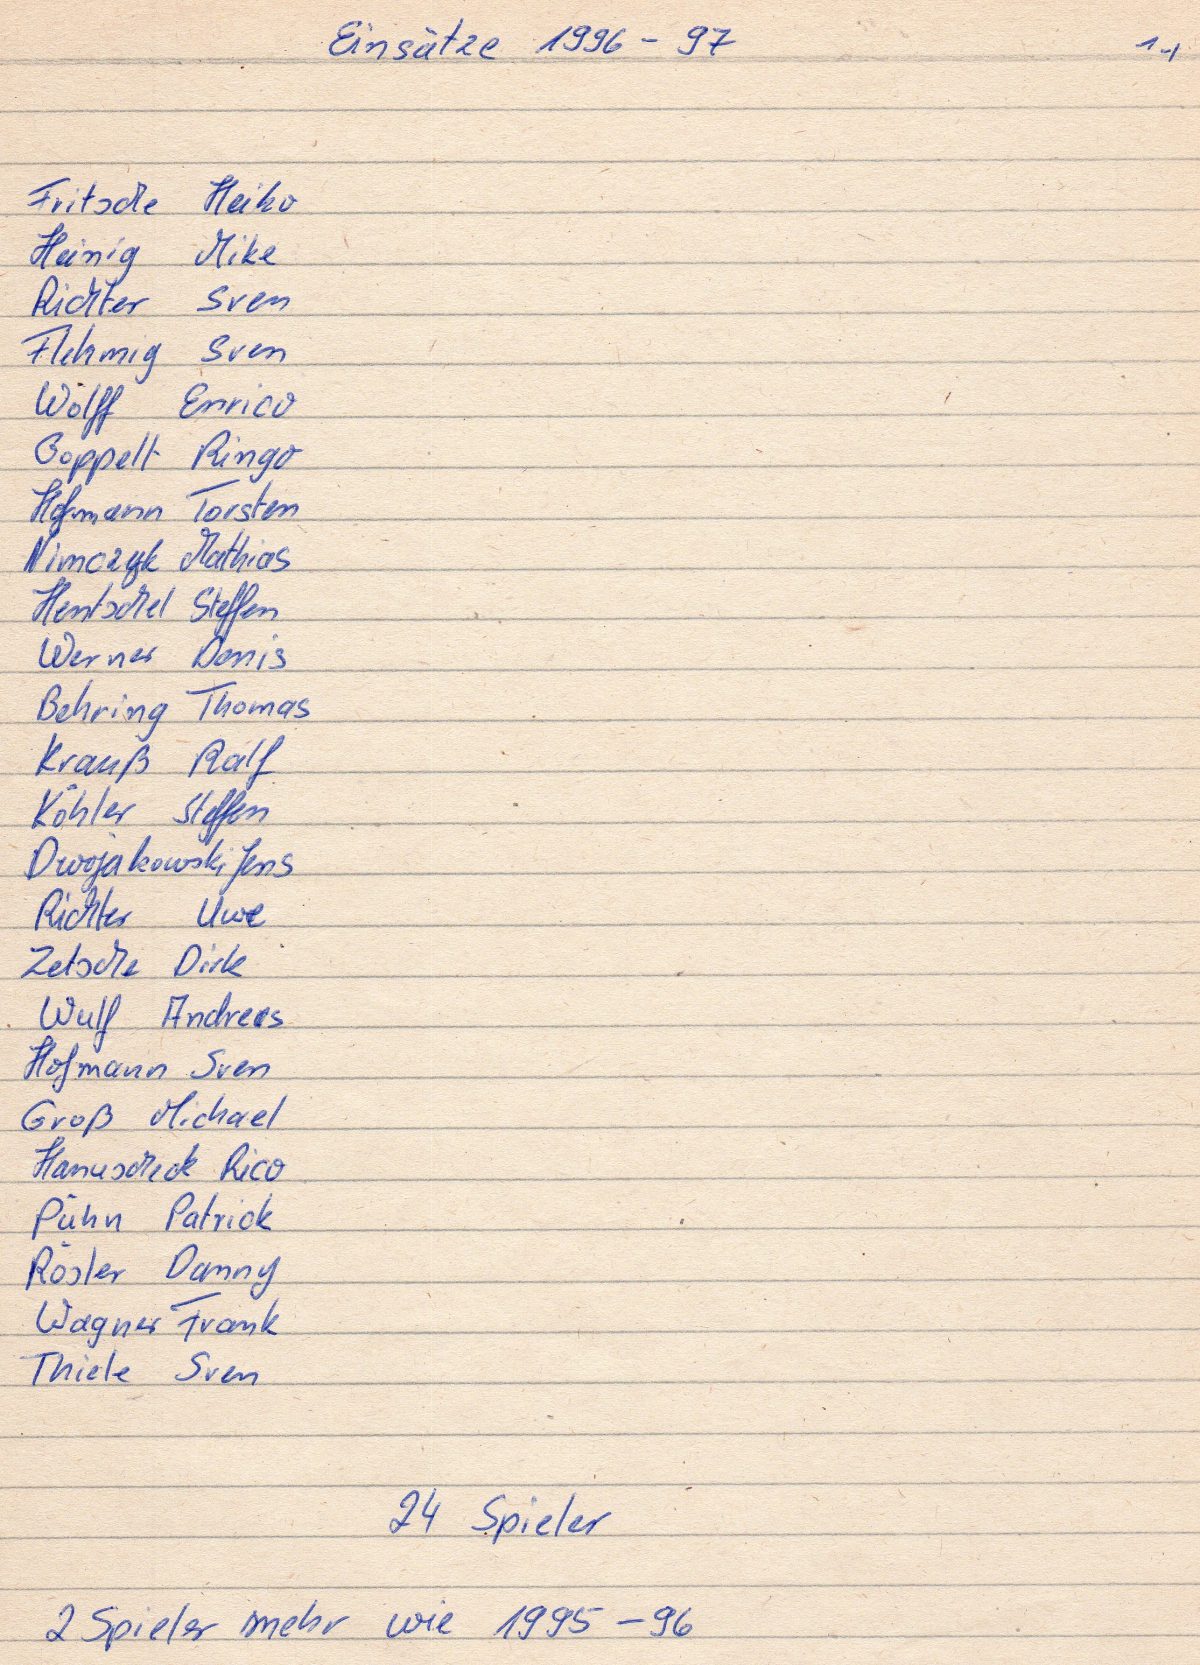 Einsätze 1996 - 97
Fritsche Heiko
Heinig Mike
Richter Sven
Flehmig Sven
Wolff Enrico
Goppelt Ringo
Hofmann Torsten
Nimczyk Mathias
Hentschel Steffen
Werner Denis
Behring Thomas
Krauß Ralf
Köhler Steffen
Dwojakowski Jens
Richter Uwe
Zetsche Dirk
Wulf Andreas
Hofmann Sven
Groß Michael
Hanuscheck Rico
Pühn Patrick
Rösler Danny
Wagner Frank
Thiele Sven
24 Spieler
2 Spieler mehr wie 1995 - 96